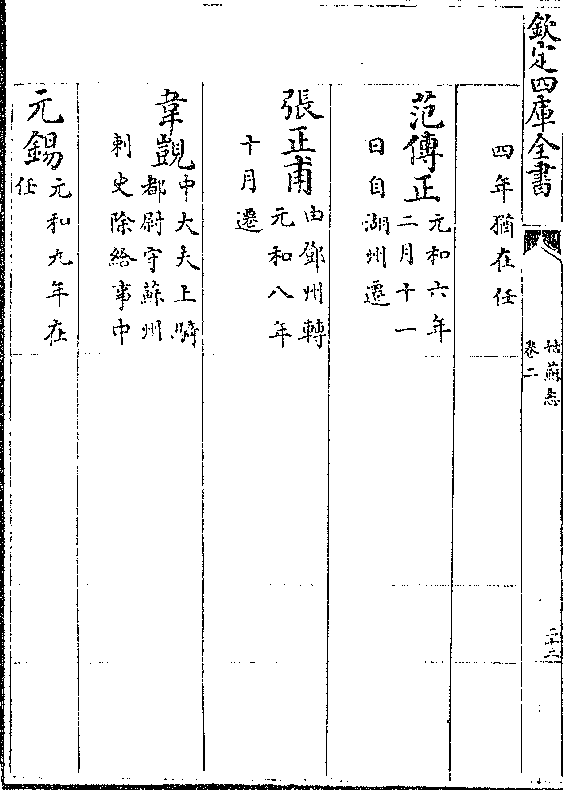 欽定四庫全書
姑蘇志
卷二
二十二
四年猶在任
范傳正
元和六年
二月十一
日自湖州遷
張正甫
由鄧州轉
元和八年
十月遷
韋覬
中大夫上騎
都尉守蘇州
刺史除給事中
元錫
元和九年在
任